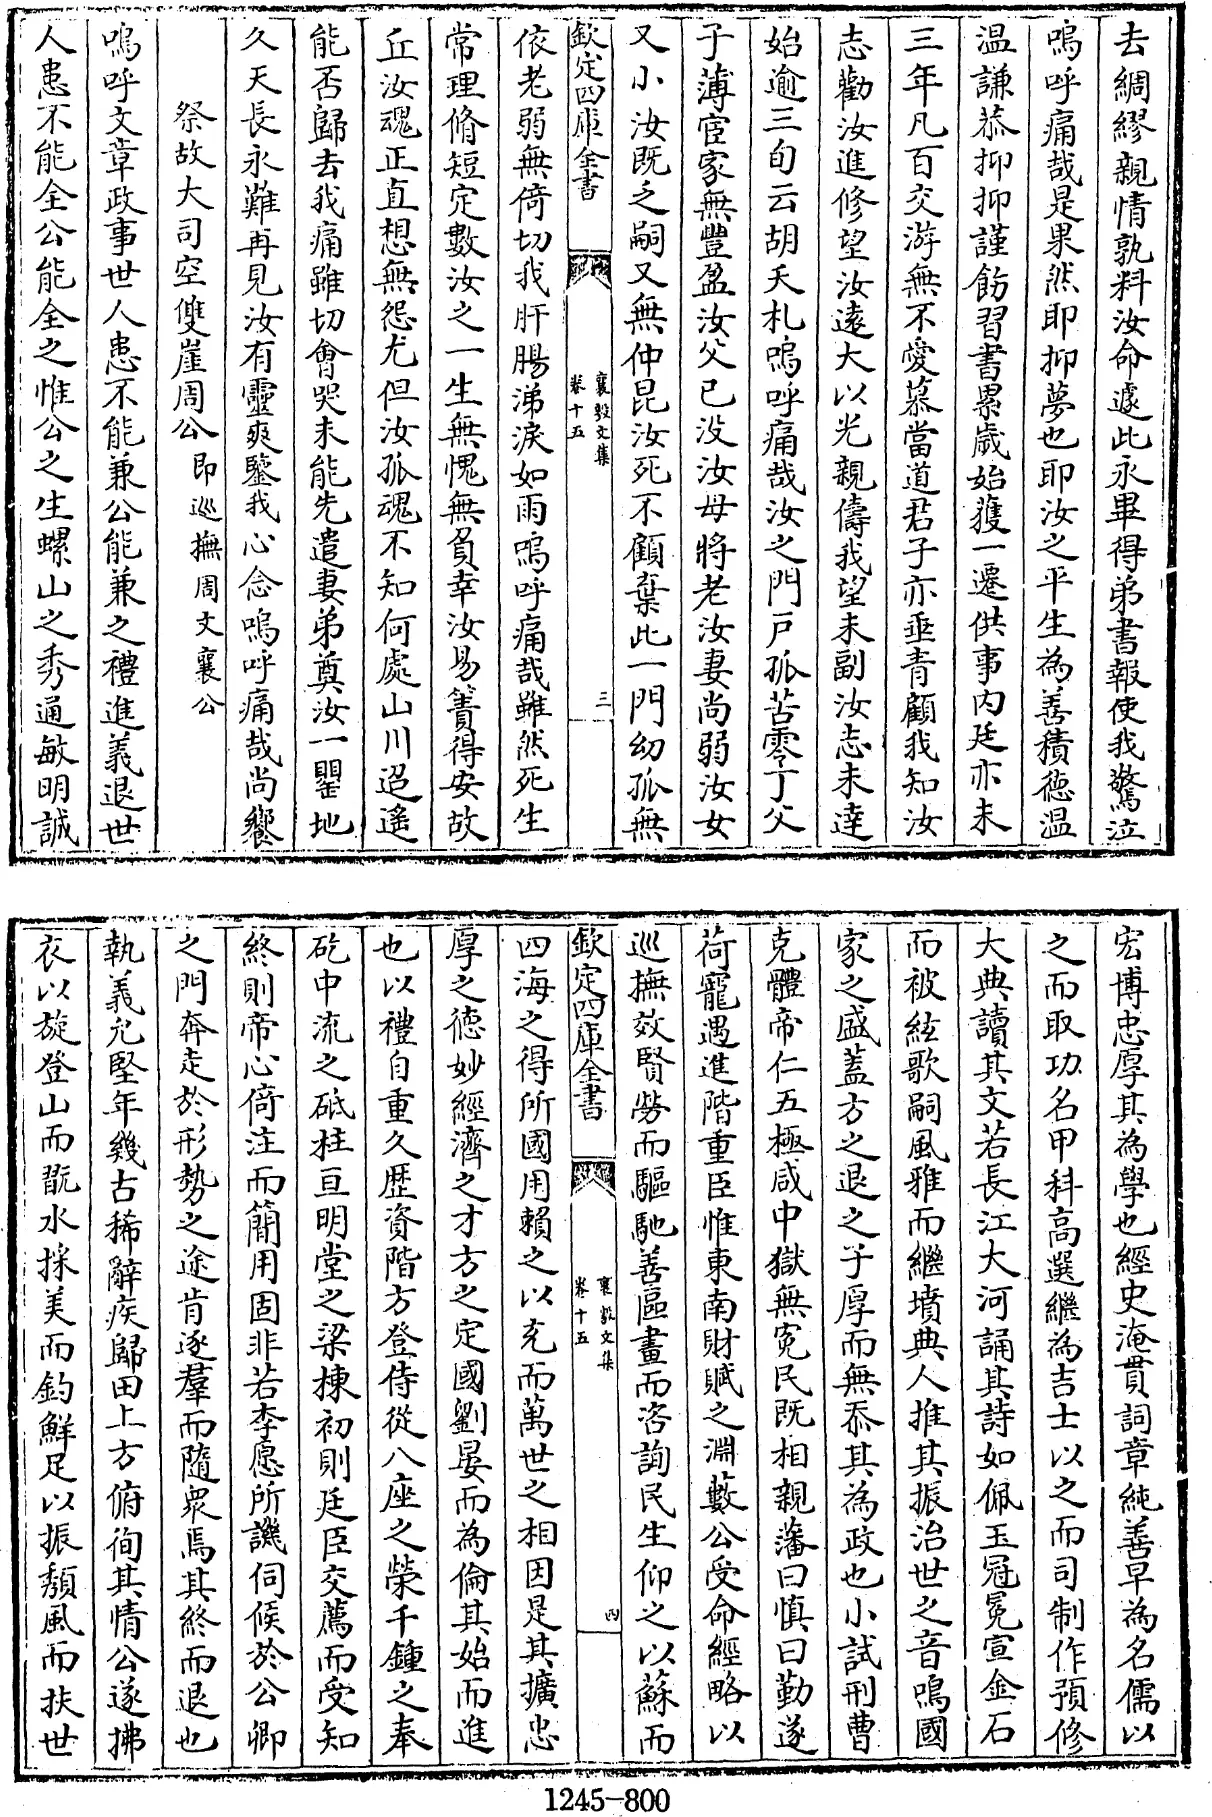 去綢繆親情孰料汝命遽此永畢得弟書報使我驚泣
嗚呼痛哉是果然耶抑夢也耶汝之平生為善積德温
温謙恭抑抑謹飭習書累歲始獲一遷供事内廷亦未
三年凡百交游無不愛慕當道君子亦垂青顧我知汝
志勸汝進修望汝遠大以光親儔我望未副汝志未達
始逾三旬云胡夭札嗚呼痛哉汝之門戸孤苦零丁父
子薄宦家無豐盈汝父已没汝母將老汝妻尚弱汝女
又小汝既乏嗣又無仲昆汝死不顧棄此一門幼孤無
欽定四庫全書
襄毅文集
卷十五
三
依老弱無倚切我肝腸涕淚如雨嗚呼痛哉雖然死生
常理脩短定數汝之一生無愧無負幸汝易簀得安故
丘汝魂正直想無怨尤但汝孤魂不知何處山川迢遙
能否歸去我痛雖切會哭未能先遣妻弟奠汝一罌地
久天長永難再見汝有靈爽鑒我心念嗚呼痛哉尚饗
祭故大司空雙崖周公即巡撫周文襄公
嗚呼文章政事世人患不能兼公能兼之禮進義退世
人患不能全公能全之惟公之生螺山之秀通敏明誠
宏博忠厚其為學也經史淹貫詞章純善早為名儒以
之而取功名甲科高選繼為吉士以之而司制作預修
大典讀其文若長江大河誦其詩如佩玉冠冕宣金石
而被絃歌嗣風雅而繼墳典人推其振治世之音鳴國
家之盛蓋方之退之子厚而無忝其為政也小試刑曹
克體帝仁五極咸中獄無寃民既相親藩曰慎曰勤遂
荷寵遇進階重臣惟東南財賦之淵藪公受命經略以
巡撫效賢勞而驅馳善區畫而咨詢民生仰之以蘇而
欽定四庫全書
襄毅文集
卷十五
四
四海之得所國用賴之以充而萬世之相因是其擴忠
厚之德妙經濟之才方之定國劉晏而為倫其始而進
也以禮自重久歴資階方登侍從八座之榮千鍾之奉
矻中流之砥柱亘明堂之梁棟初則廷臣交薦而受知
終則帝心倚注而簡用固非若李愿所譏伺候於公卿
之門奔走於形勢之途肯逐羣而隨衆焉其終而退也
執義允堅年幾古稀辭疾歸田上方俯徇其情公遂拂
衣以旋登山而翫水採美而釣鮮足以振頽風而扶世
1245-800